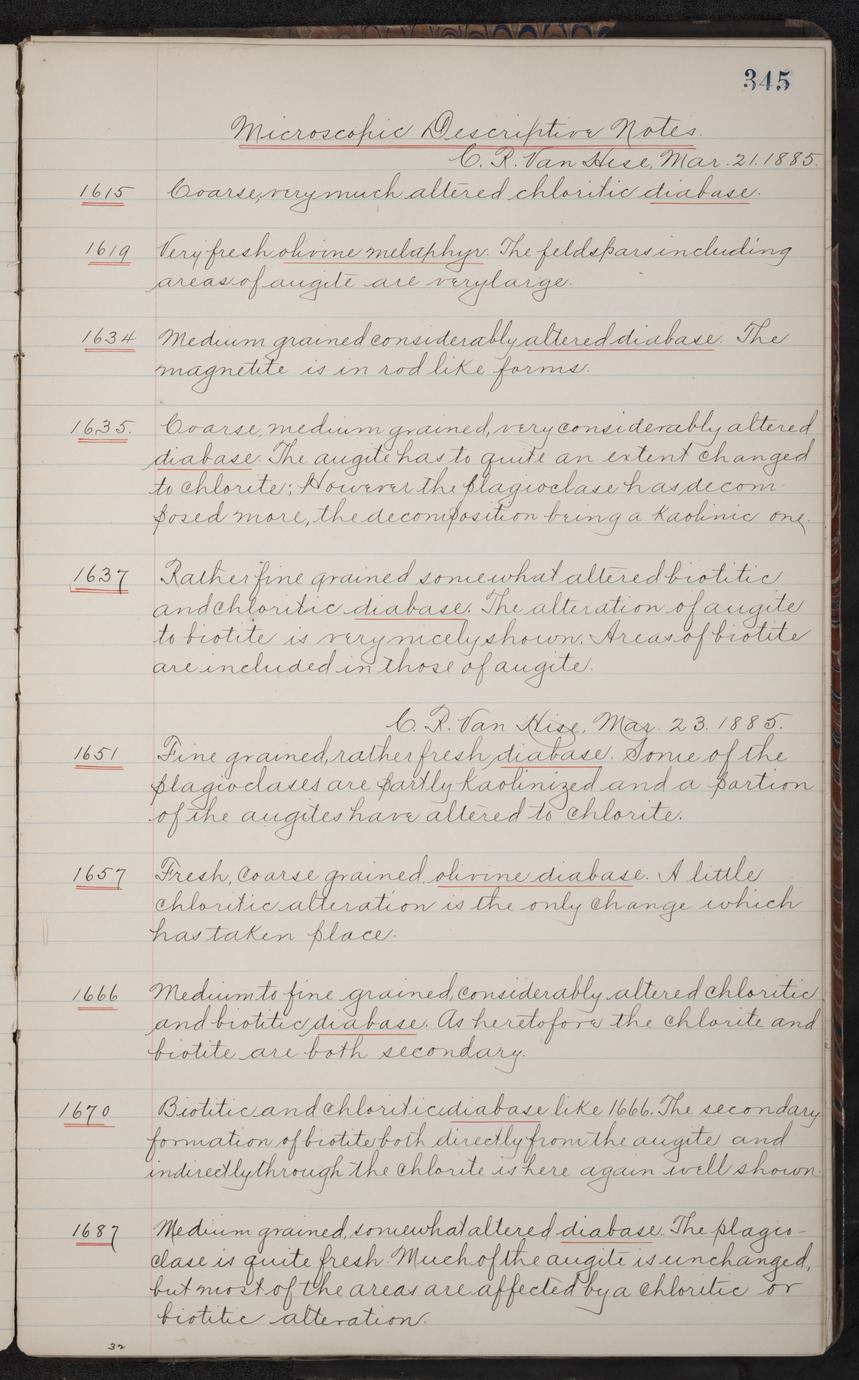 345
Microscopic Descriptive Notes.
C. R. Van Hise, Mar. 21. 1885.
1615 Coarse, very much altered chloritic diabase.
1619 Very fresh olivine melaphyr. The feldspars including
areas of augite are very large.
1634 Medium grained considerably altered diabase. The
magnetite is in rod like forms.
1635. Coarse, medium grained, very considerably altered
diabase. The augite has to quite an extent changed
to chlorite; However the plagioclase has decom-
posed more, the decomposition being a kaolinic one.
1637 Rather fine grained somewhat altered biotitic
and chloritic diabase. The alteration of augite
to biotite is very nicely shown. Areas of biotite
are included in those of augite.
C. R. Van Hise, Mar. 23. 1885.
1651 Fine grained, rather fresh diabase. Some of the
plagioclases are partly kaolinized and a portion
of the augites have altered to chlorite.
1657 Fresh, coarse grained, olivine diabase. A little
chloritic alteration is the only change which
has taken place.
1666 Medium to fine grained, considerably altered chloritic
and biotitic diabase. As heretofore the chlorite and
biotite are both secondary.
1670 Biotitic and chloritic diabase like 1666. The secondary
formation of biotite both directly from the augite and
indirectly through the chlorite is here again well shown.
1687 Medium grained, somewhat altered diabase. The plagio-
clase is quite fresh. Much of the augite is unchanged,
but most of the areas are affected by a chloritic or
biotitic alteration.
32